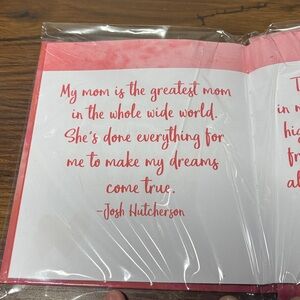 My mom is the greatest mom
in the whole wide world.
She's done everything for
me to make my dreams
come true.
-Josh Hutcherson
in